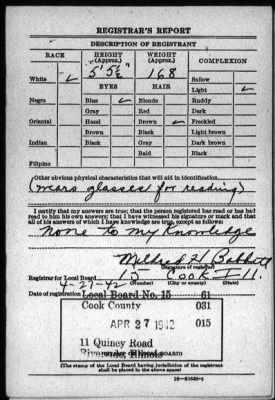 REGISTRAR'S REPORT
DESCRIPTION OF REGISTRANT
RACE HEIGHT (Approx.) WEIGHT (Approx.) COMPLEXION
5' 5½" 168
White ✓ Sallow
EYES HAIR Light ✓
Negro Blue ✓ Blonde Ruddy
Gray Red Dark
Oriental Hazel Brown ✓ Freckled
Brown Black Light brown
Indian Black Gray Dark brown
Bald Black
Filipino
Other obvious physical characteristics that will aid in identification
(wears glasses for reading)
I certify that my answers are true; that the person registered has read or has had
read to him his own answers; that I have witnessed his signature or mark and that
all of his answers of which I have knowledge are true, except as follows:
None to my Knowledge
Mildred H Babbitt
(Signature of registrar)
Registrar for Local Board 15 Cook Ill.
(Number) (City or county) (State)
Date of registration 4-27-42
Local Board No. 15 61
Cook County 031
APR 27 1942 015
11 Quincy Road
Riverside, Illinois
(The stamp of the Local Board having jurisdiction of the registrant
shall be placed in the above space)